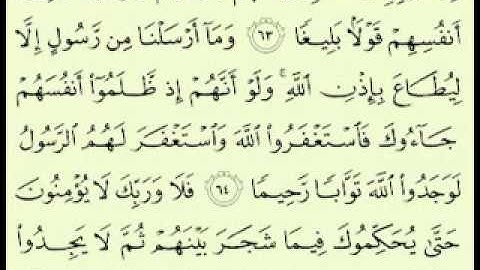 أَنفُسِهِمْ قَوْلًۢا بَلِيغًا ﴿٦٣﴾ وَمَآ أَرْسَلْنَا مِن رَّسُولٍ إِلَّا
لِيُطَاعَ بِإِذْنِ ٱللَّهِ ۚ وَلَوْ أَنَّهُمْ إِذ ظَّلَمُوٓا۟ أَنفُسَهُمْ
جَآءُوكَ فَٱسْتَغْفَرُوا۟ ٱللَّهَ وَٱسْتَغْفَرَ لَهُمُ ٱلرَّسُولُ
لَوَجَدُوا۟ ٱللَّهَ تَوَّابًا رَّحِيمًا ﴿٦٤﴾ فَلَا وَرَبِّكَ لَا يُؤْمِنُونَ
حَتَّىٰ يُحَكِّمُوكَ فِيمَا شَجَرَ بَيْنَهُمْ ثُمَّ لَا يَجِدُوا۟